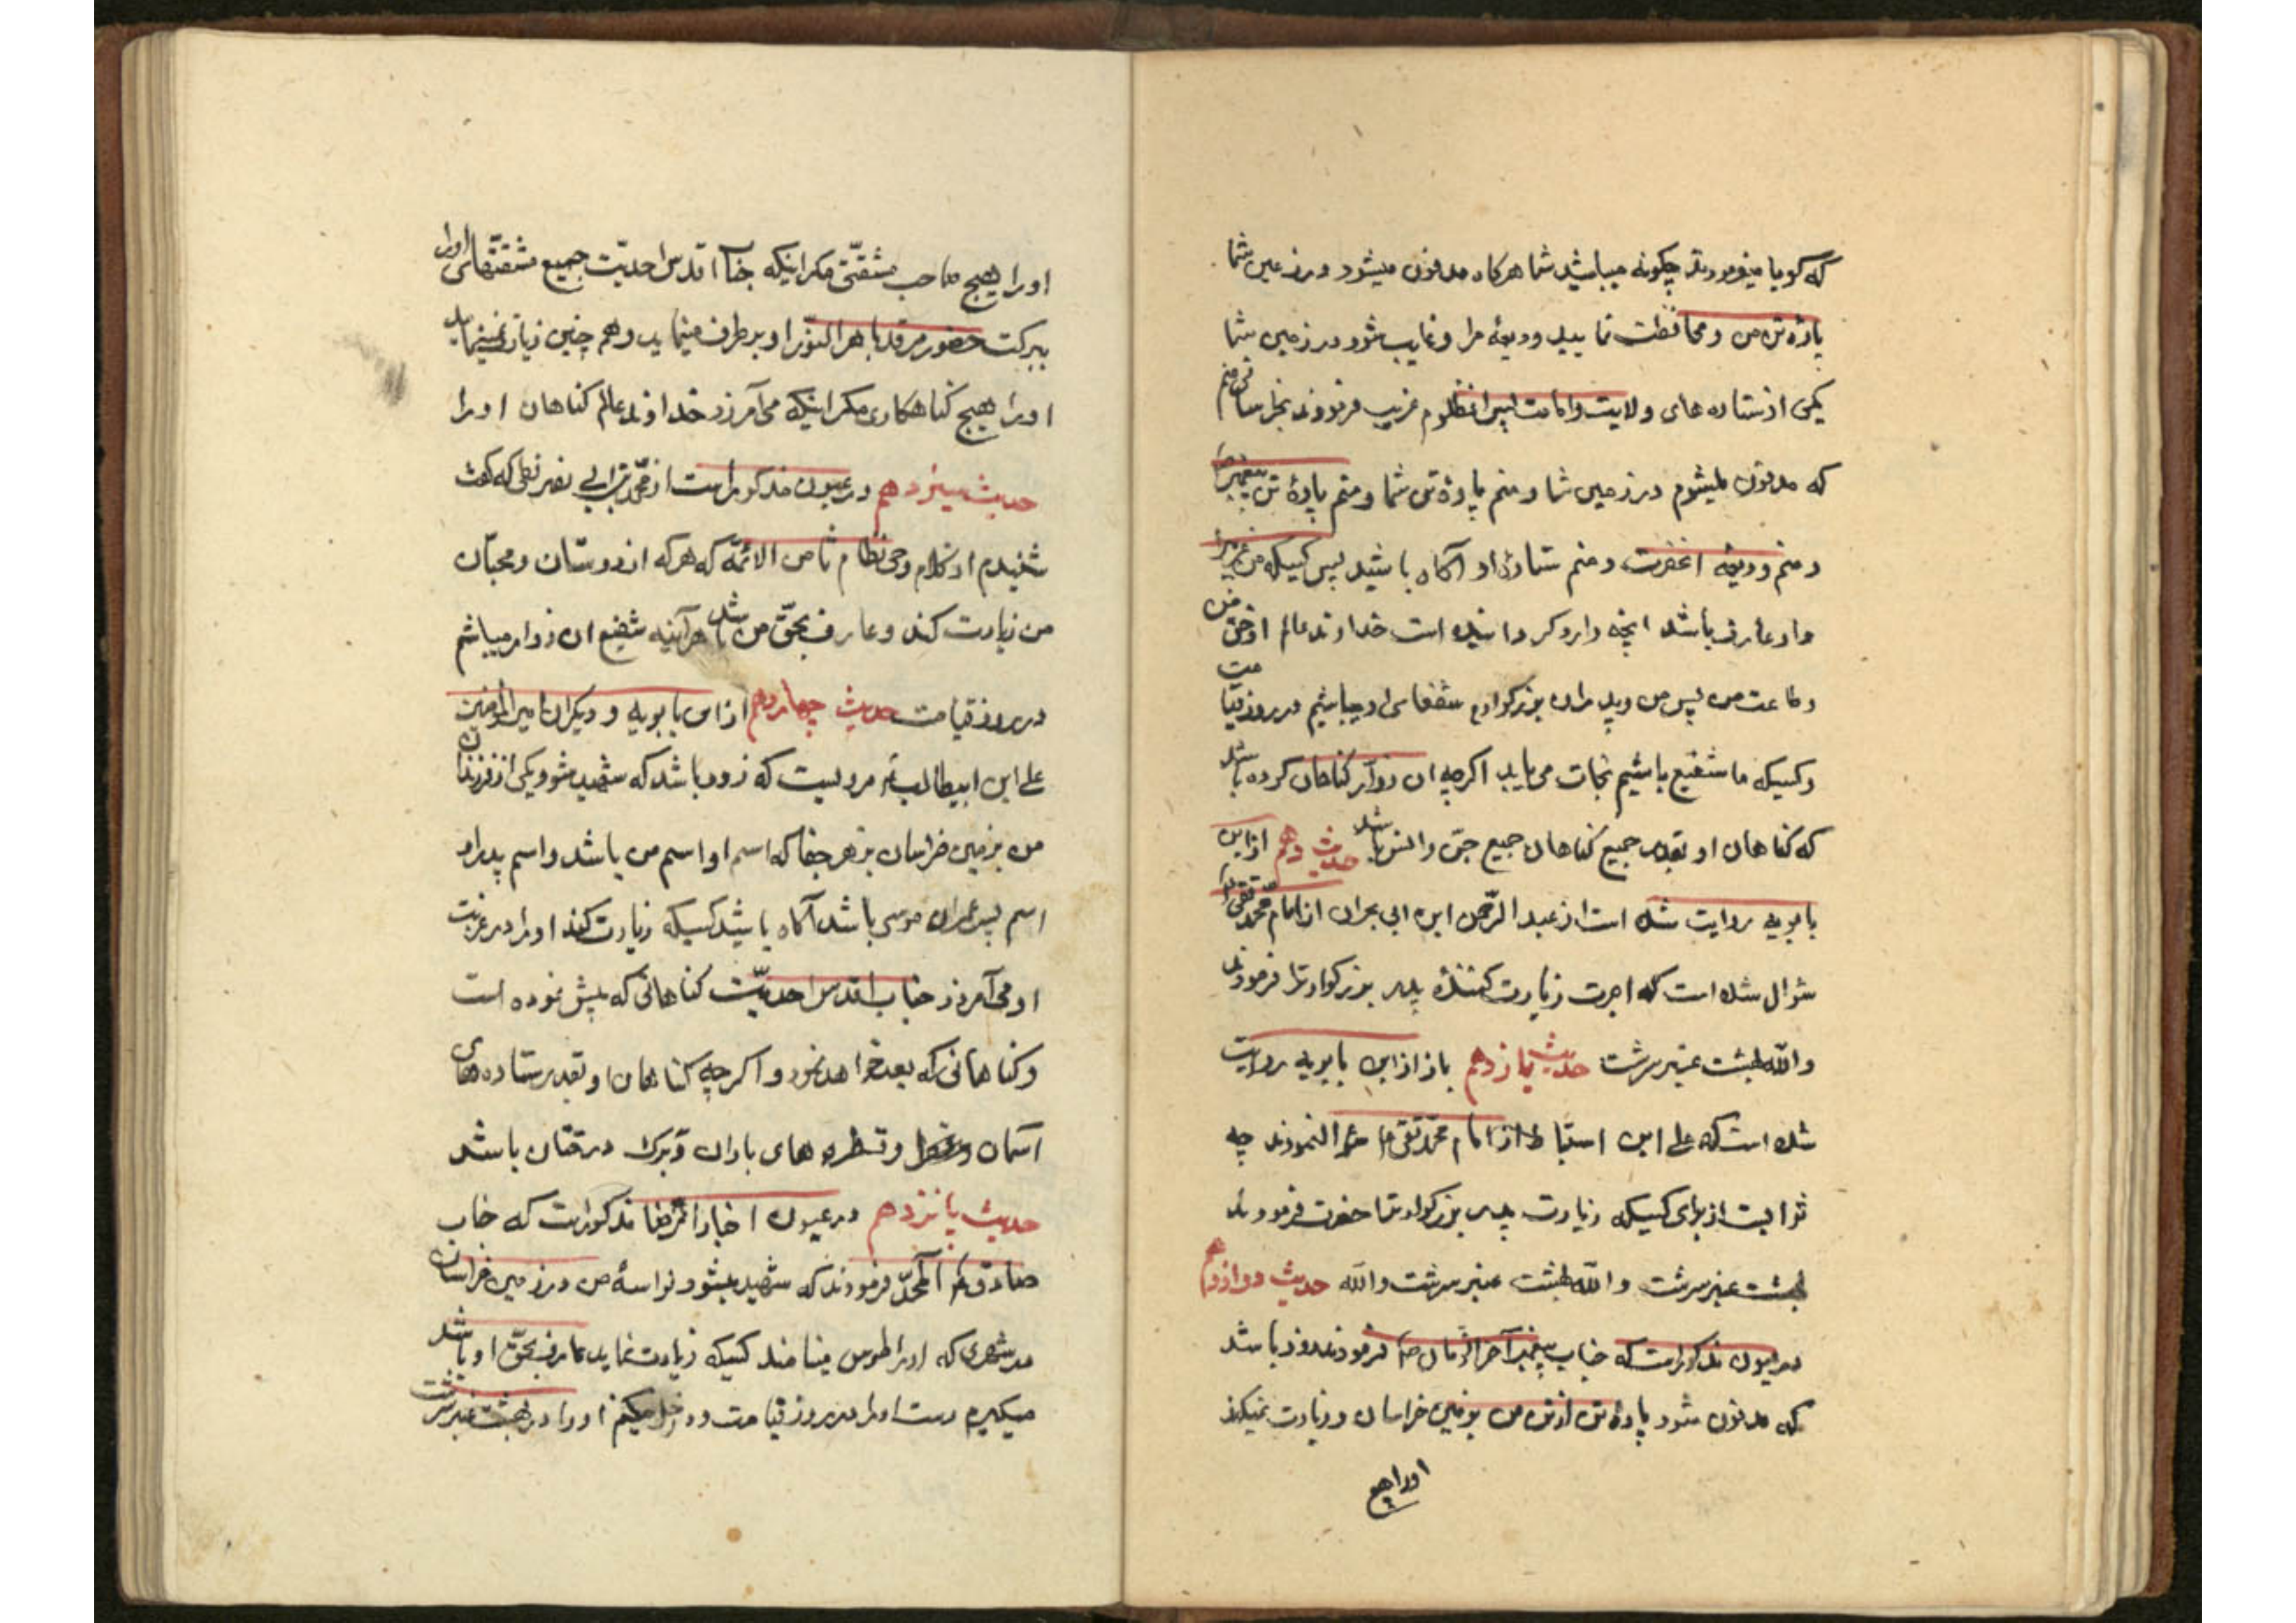 که گویا میفرمودند چگونه میباشید شما هرگاه مدفون میشود در زمین شما
پارهٔ تن من و محافظت نمایید ودیعهٔ مرا و غایب شود در زمین شما
یکی از ستاره های ولایت و امامت پس امام مظلوم غریب فرمودند منم
که مدفون میشوم در زمین شما و منم پارهٔ تن شما و منم پارهٔ تن پیغمبر
و منم ودیعهٔ آنحضرت و منم ستارهٔ او آگاه باشید پس کسیکه مرا
و او عارف باشد آنچه واجب گردانیده است خداوند عالم از حق من
و طاعت من پس من و پدران بزرگوارم شفعای او میباشیم در روز قیامت
و کسیکه ما شفیع باشیم نجات می یابد اگرچه آن زوار گناهان کرده باشد
که گناهان او بقدر جمیع گناهان جمیع جن و انس باشد حدیث دهم از ابن
بابویه روایت شده است از عبد الرحمن ابن ابی بحران از امام محمد تقی
سؤال شده است که اجرت زیارت کنندهٔ پدر بزرگوارترا فرمودند
والله بهشت عنبر سرشت حدیث یازدهم باز از ابن بابویه روایت
شده است که علی ابن اسباط از امام محمد تقی سؤال نمودند چه
ثوابست از برای کسیکه زیارت پدر بزرگوارترا حضرت فرمودند
بهشت عنبر سرشت والله بهشت عنبر سرشت والله حدیث دوازدهم
در عیون مذکور است که جناب پیغمبر آخرالزمان ص فرمودند زود باشد
که مدفون شود پارهٔ تن از تن من بزمین خراسان و زیارت نمیکند
اورا هیچ
اورا هیچ صاحب مشقتی مگر اینکه جناب اقدس احدیت جمیع مشقتهای اورا
ببرکت حضور مرقد باهر النور او برطرف مینماید و هم چنین زیارت نمینماید
اورا هیچ گناهکاری مگر اینکه می آمرزد خداوند عالم گناهان اورا
حدیث سیزدهم در عیون مذکور است از محمد بن ابی نصر بزنطی که گفت
شنیدم از کلام وحی نظام ثامن الائمه که هر که از دوستان و محبان
من زیارت کند و عارف بحق من باشد هر آینه شفیع آن زوار میباشم
در روز قیامت حدیث چهاردهم از ابن بابویه و دیگران امیر المؤمنین
علی ابن ابیطالب مرویست که زود باشد که شهید شود یکی از فرزندان
من بزمین خراسان بزهر جفا که اسم او اسم من باشد و اسم پدر او
اسم پسر عمران موسی باشد آگاه باشید کسیکه زیارت کند اورا در غربت
او می آمرزد جناب اقدس احدیت گناهانی که پیش نموده است
و گناهانی که بعد خواهد نمود و اگرچه گناهان او بقدر ستاره های
آسمان و قطره های باران و برگ درختان باشد
حدیث پانزدهم در عیون اخبار الرضا مذکور است که جناب
صادق آل محمد فرمودند که شهید میشود نواسهٔ من در زمین خراسان
در شهری که اورا طوس مینامند کسیکه زیارت نماید عارف بحق او باشد
میگیرم دست اورا در روز قیامت و داخل میکنم اورا در بهشت عنبر سرشت